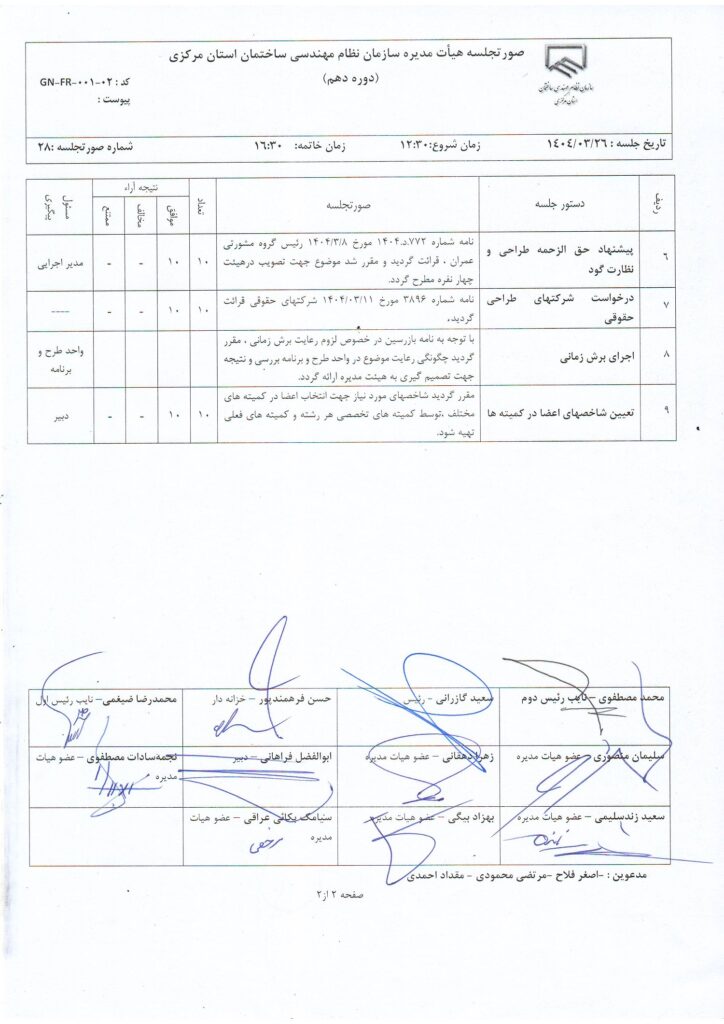 صورتجلسه هیأت مدیره سازمان نظام مهندسی ساختمان استان مرکزی
(دوره دهم)
سازمان نظام مهندسی ساختمان
استان مرکزی
کد : GN-FR-۰۰۱-۰۲
پیوست :
تاریخ جلسه : ۱۴۰۴/۰۳/۲۶ زمان شروع:۱۲:۳۰ زمان خاتمه: ۱۶:۳۰ شماره صورتجلسه :۲۸
ردیف دستور جلسه صورتجلسه تعداد نتیجه آراء مسئول پیگیری
موافق مخالف ممتنع
۶ پیشنهاد حق الزحمه طراحی و
نظارت گود
نامه شماره ۷۷۲.د.۱۴۰۴ مورخ ۱۴۰۴/۳/۸ رئیس گروه مشورتی
عمران ، قرائت گردید و مقرر شد موضوع جهت تصویب درهیئت
چهار نفره مطرح گردد.
۱۰ ۱۰ - - مدیر اجرایی
۷ درخواست شرکتهای طراحی
حقوقی
نامه شماره ۳۸۹۶ مورخ ۱۴۰۴/۰۳/۱۱ شرکتهای حقوقی قرائت
گردید.
۱۰ ۱۰ - - ----
۸ اجرای برش زمانی
با توجه به نامه بازرسین در خصوص لزوم رعایت برش زمانی ، مقرر
گردید چگونگی رعایت موضوع در واحد طرح و برنامه بررسی و نتیجه
جهت تصمیم گیری به هیئت مدیره ارائه گردد.
واحد طرح و
برنامه
۹ تعیین شاخصهای اعضا در کمیته ها
مقرر گردید شاخصهای مورد نیاز جهت انتخاب اعضا در کمیته های
مختلف ،توسط کمیته های تخصصی هر رشته و کمیته های فعلی
تهیه شود.
۱۰ ۱۰ - - دبیر
محمد مصطفوی – نایب رئیس دوم
سعید گازرانی – رئیس
حسن فرهمندپور – خزانه دار
محمدرضا ضیغمی – نایب رئیس اول
سلیمان منصوری – عضو هیات مدیره
زهرا دهقانی – عضو هیات مدیره
ابوالفضل فراهانی – دبیر
نجمه‌سادات مصطفوی – عضو هیات
مدیره
سعید زندسلیمی – عضو هیات مدیره
بهزاد بیگی – عضو هیات مدیره
سیامک یکانی عراقی – عضو هیات
مدیره
مدعوین : -اصغر فلاح -مرتضی محمودی - مقداد احمدی
صفحه ۲ از۲